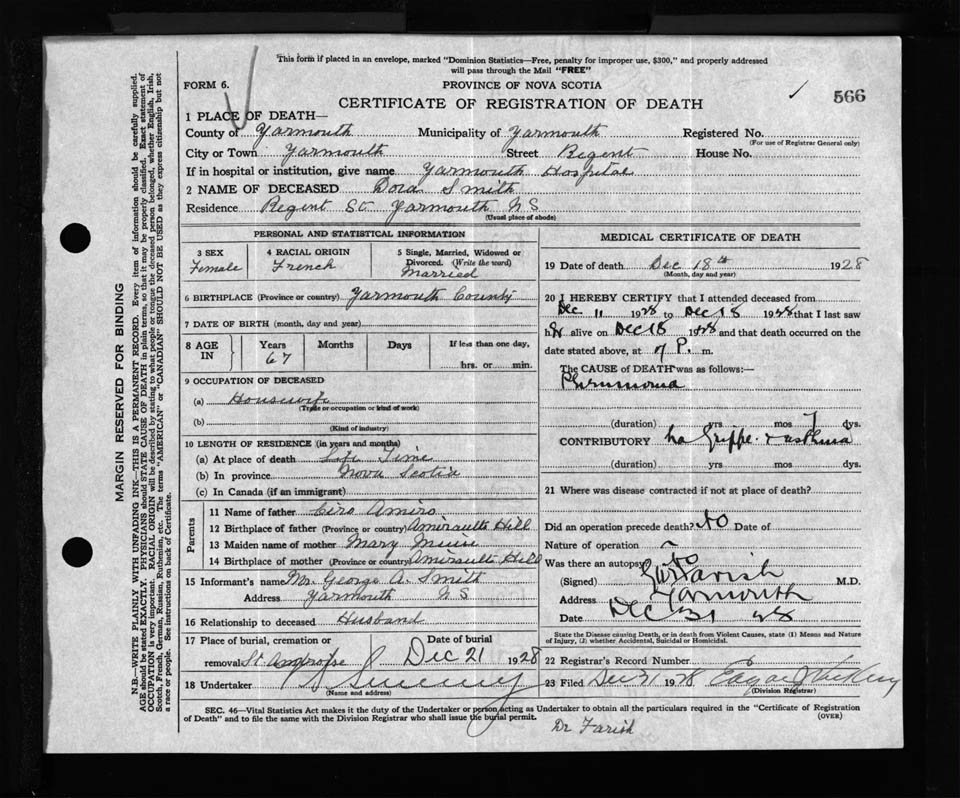 This form if placed in an envelope, marked "Dominion Statistics—Free, penalty for improper use, $300," and properly addressed
will pass through the Mail "FREE"
FORM 6.
PROVINCE OF NOVA SCOTIA
CERTIFICATE OF REGISTRATION OF DEATH
566
1 PLACE OF DEATH—
County of Yarmouth Municipality of Yarmouth Registered No.
(For use of Registrar General only)
City or Town Yarmouth Street Regent House No.
If in hospital or institution, give name Yarmouth Hospital
2 NAME OF DECEASED Dora Smith
Residence Regent St Yarmouth NS
(Usual place of abode)
PERSONAL AND STATISTICAL INFORMATION
3 SEX Female
4 RACIAL ORIGIN French
5 Single, Married, Widowed or Divorced. (Write the word) Married
6 BIRTHPLACE (Province or country) Yarmouth County
7 DATE OF BIRTH (month, day and year)
8 AGE IN Years 67 Months Days If less than one day, hrs. or min.
9 OCCUPATION OF DECEASED
(a) Housewife
(Trade or occupation or kind of work)
(b)
(Kind of industry)
10 LENGTH OF RESIDENCE (in years and months)
(a) At place of death Life Time
(b) In province Nova Scotia
(c) In Canada (if an immigrant)
Parents
11 Name of father Ciro Amiro
12 Birthplace of father (Province or country) Amiraults Hill
13 Maiden name of mother Mary Muise
14 Birthplace of mother (Province or country) Amiraults Hill
15 Informant's name Mr. George A. Smith
Address Yarmouth NS
16 Relationship to deceased Husband
17 Place of burial, cremation or removal St Ambroise Date of burial Dec 21 1928
18 Undertaker Sweeney
(Name and address)
MEDICAL CERTIFICATE OF DEATH
19 Date of death Dec 18th 1928
(Month, day and year)
20 I HEREBY CERTIFY that I attended deceased from
Dec 11 1928 to Dec 18 1928 that I last saw
her alive on Dec 18 1928 and that death occurred on the
date stated above, at 7 P. m.
The CAUSE OF DEATH was as follows:—
Pneumonia
(duration) yrs mos 7 dys.
CONTRIBUTORY La Grippe & asthma
(duration) yrs mos dys.
21 Where was disease contracted if not at place of death?
Did an operation precede death? No Date of
Nature of operation
Was there an autopsy? No
(Signed) Farish M.D.
Address Yarmouth
Date Dec 21 28
State the Disease causing Death, or in death from Violent Causes, state (1) Means and Nature
of Injury, (2) whether Accidental, Suicidal or Homicidal.
22 Registrar's Record Number
23 Filed Dec 21 1928 Edgar
(Division Registrar)
SEC. 46—Vital Statistics Act makes it the duty of the Undertaker or person acting as Undertaker to obtain all the particulars required in the "Certificate of Registration
of Death" and to file the same with the Division Registrar who shall issue the burial permit.
(OVER)
Dr Farish
MARGIN RESERVED FOR BINDING
N.B—WRITE PLAINLY WITH UNFADING INK—THIS IS A PERMANENT RECORD. Every item of information should be carefully supplied.
AGE should be stated EXACTLY. PHYSICIANS should STATE CAUSE OF DEATH in plain terms, so that it may be properly classified. Exact statement of
OCCUPATION is very important. RACIAL ORIGIN will be described by stating to what people or tongue the deceased person belonged, whether English, Irish,
Scotch, French, German, Russian, Ruthenian, etc. The terms "AMERICAN" or "CANADIAN" SHOULD NOT BE USED as they express citizenship but not
a race or people. See instructions on back of Certificate.